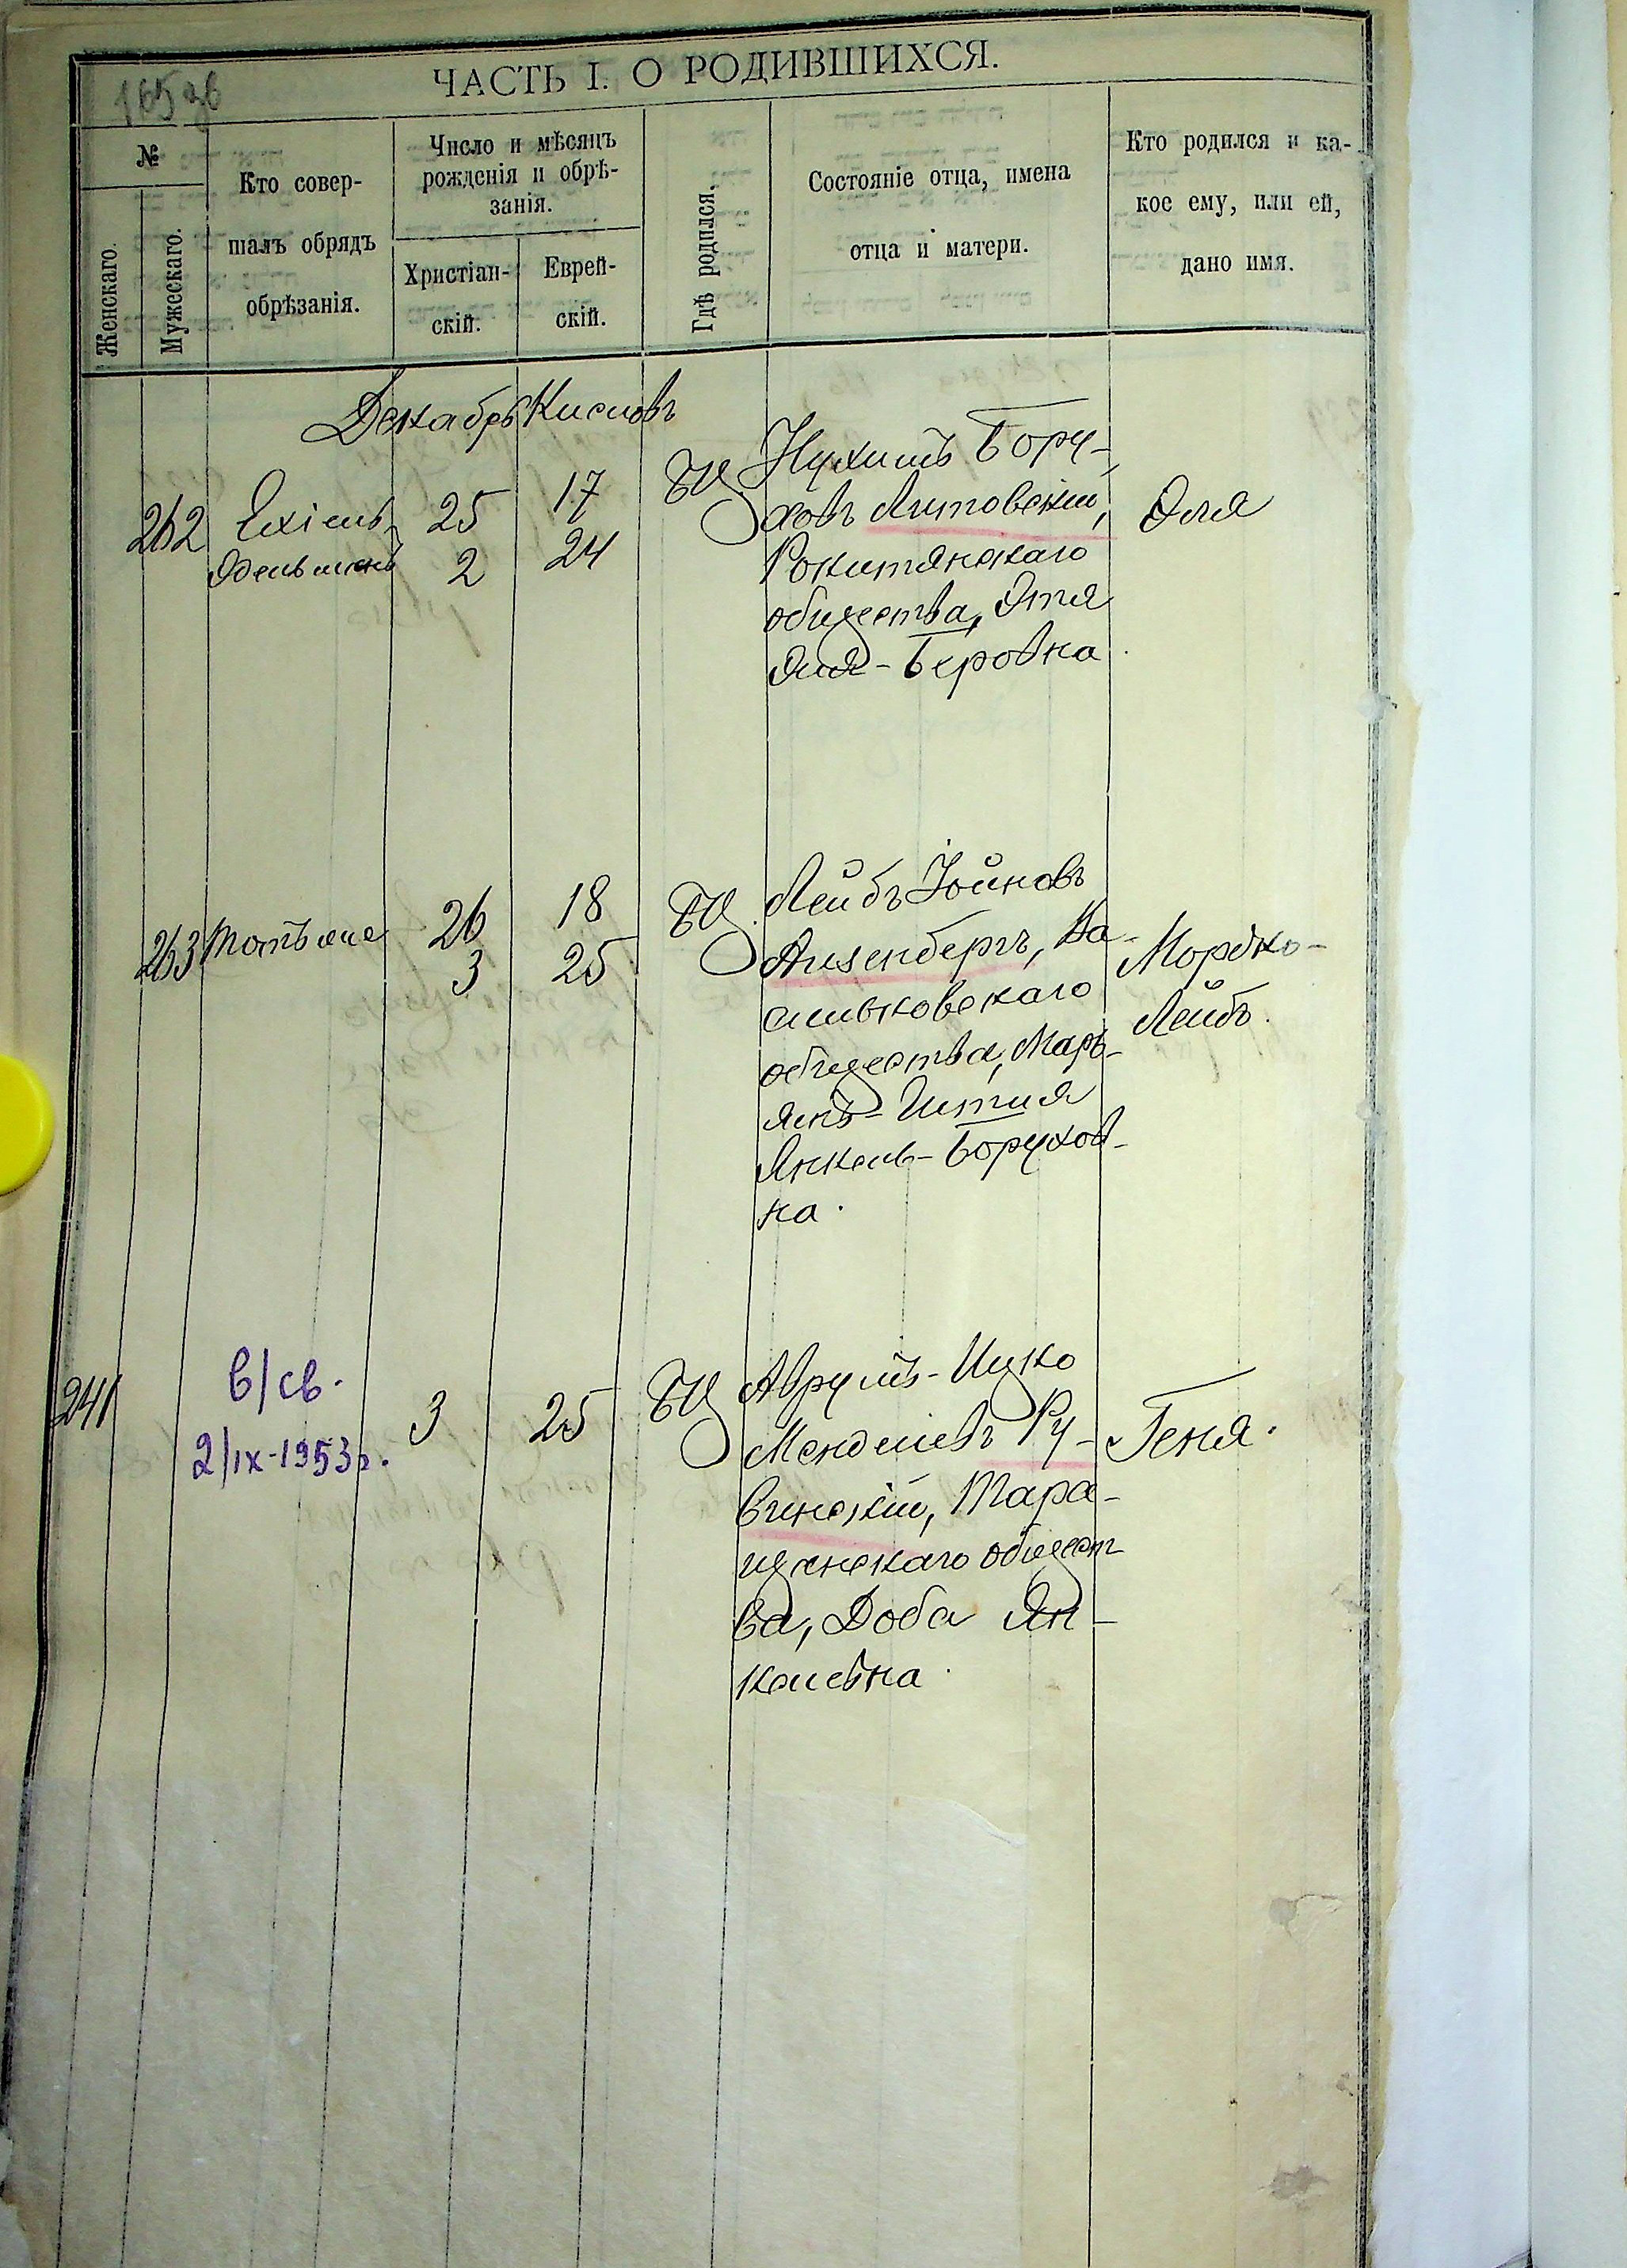 165 зб
ЧАСТЬ I. О РОДИВШИХСЯ.
№
Женскаго.
Мужескаго.
Кто совер-
шалъ обрядъ
обрѣзанія.
Число и мѣсяцъ
рожденія и обрѣ-
занія.
Христіан-
скій.
Еврей-
скій.
Гдѣ родился.
Состояніе отца, имена
отца и матери.
Кто родился и ка-
кое ему, или ей,
дано имя.
Декабрь Кислевъ
262
Ехіель
Эдельманъ
25 17
2 24
БЦ
Нухимъ Бору-
ховъ Литовскій,
Рокитянскаго
общества, Этя
Эля-Беровна.
Эля
263
26 18
3 25
БЦ.
Лейбъ Іойновъ
Айзенбергъ, Ва-
сильковскаго
общества, Марь-
ямъ-Гитля
Янкель-Борухов-
на.
Мордко-
Лейбъ.
241
в/св.
2/IX-1953г.
3 25
БЦ
Аврумъ-Ицко
Менделевъ Ру-
винскій, Тара-
щанскаго общест-
ва, Доба Ян-
келевна.
Геня.